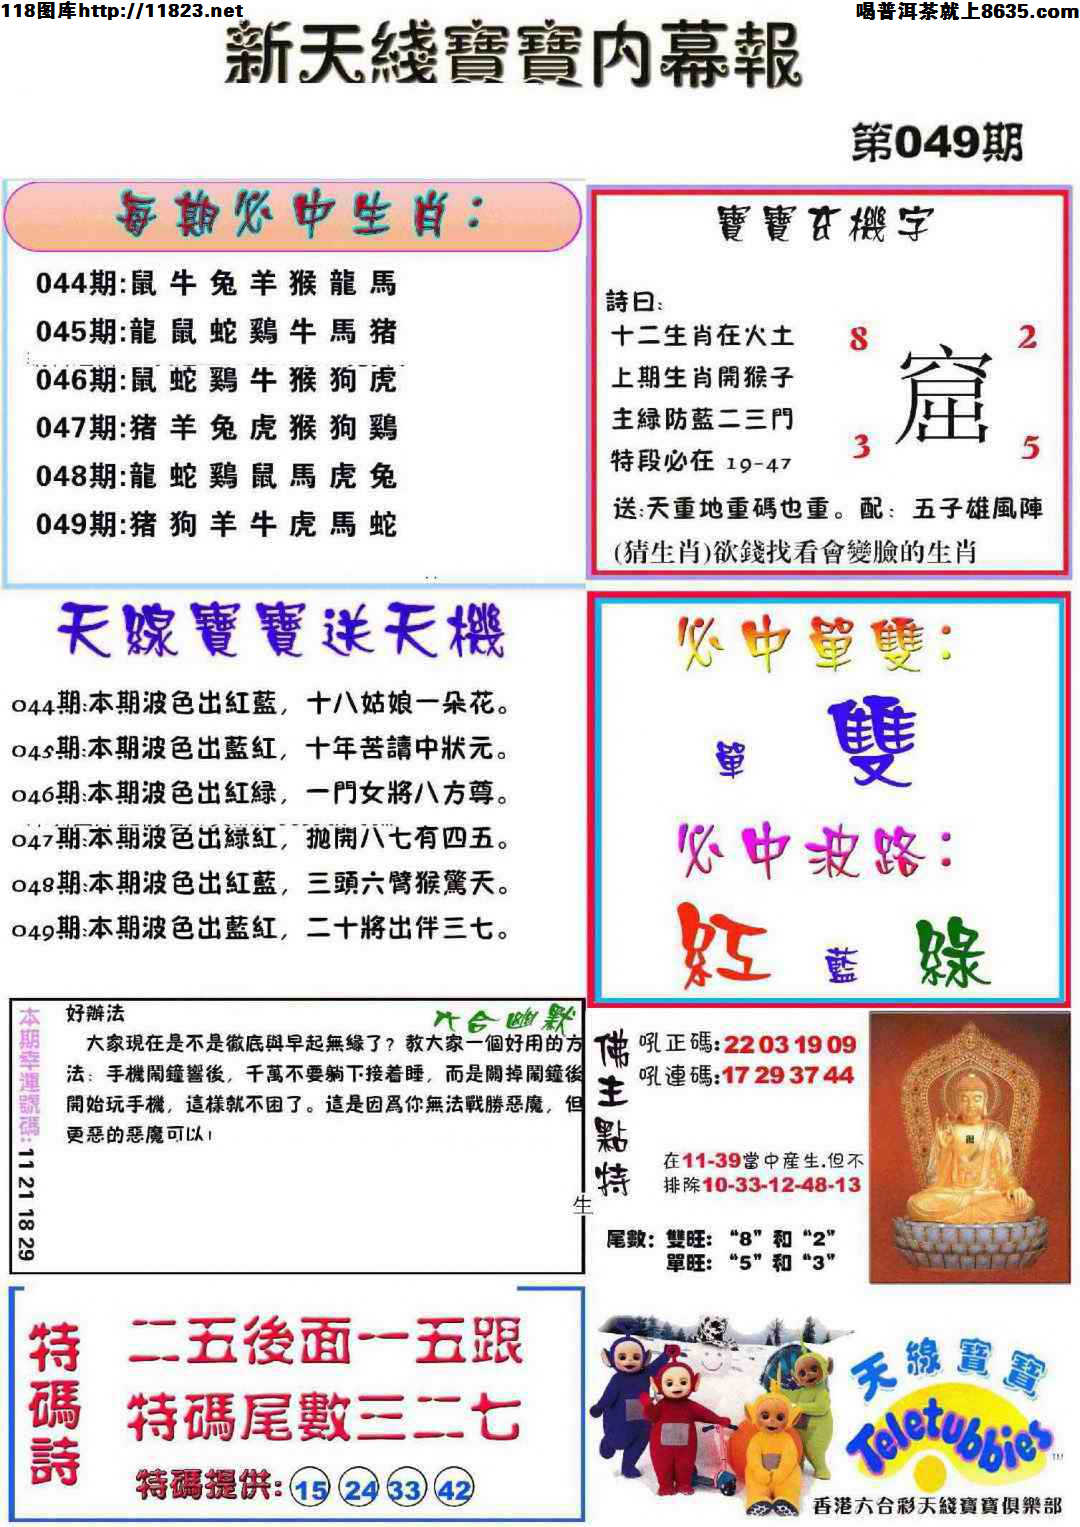 118图库http://11823.net
喝普洱茶就上8635.com
新天綫寶寶内幕報
第049期
每期必中生肖：
044期:鼠 牛 兔 羊 猴 龍 馬
045期:龍 鼠 蛇 鷄 牛 馬 猪
046期:鼠 蛇 鷄 牛 猴 狗 虎
047期:猪 羊 兔 虎 猴 狗 鷄
048期:龍 蛇 鷄 鼠 馬 虎 兔
049期:猪 狗 羊 牛 虎 馬 蛇
寶寶玄機字
詩曰:
十二生肖在火土
上期生肖開猴子
主緑防藍二三門
特段必在 19-47
8 2
窟
3 5
送:天重地重碼也重。配：五子雄風陣
(猜生肖)欲錢找看會變臉的生肖
天線寶寶送天機
044期:本期波色出紅藍，十八姑娘一朵花。
045期:本期波色出藍紅，十年苦讀中狀元。
046期:本期波色出紅緑，一門女將八方尊。
047期:本期波色出緑紅，拋開八七有四五。
048期:本期波色出紅藍，三頭六臂猴驚天。
049期:本期波色出藍紅，二十將出伴三七。
必中單雙：
單 雙
必中波路：
紅 藍 綠
本期幸運號碼:11 21 18 29
好辦法
六合幽默
大家現在是不是徹底與早起無緣了？教大家一個好用的方
法：手機鬧鐘響後，千萬不要躺下接着睡，而是關掉鬧鐘後
開始玩手機，這樣就不困了。這是因爲你無法戰勝惡魔，但
更惡的惡魔可以！
生
佛主點特
吼正碼:22 03 19 09
吼連碼:17 29 37 44
在11-39當中産生.但不
排除10-33-12-48-13
尾數：雙旺：“8”和“2”
單旺：“5”和“3”
特碼詩
二五後面一五跟
特碼尾數三二七
特碼提供: 15 24 33 42
天線寶寶
Teletubbies
TM
香港六合彩天綫寶寶俱樂部